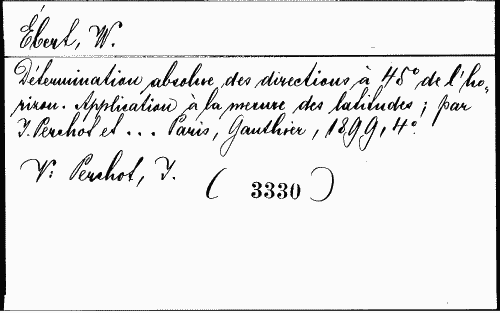 Ébert, W.
Détermination absolue des directions à 45° de l'ho-
rizon. Application à la mesure des latitudes; par
J. Perchot et ... Paris, Gauthier, 1899, 4°.
V: Perchot, J.
(3330)